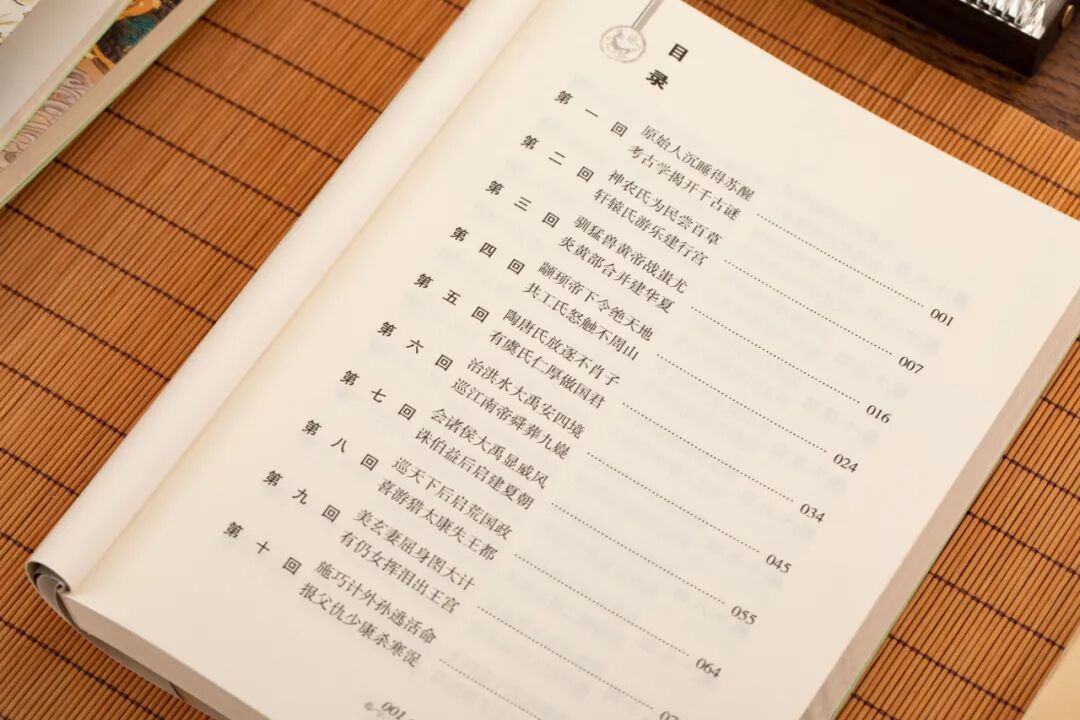 目录
第一回 原始人沉睡得苏醒
考古学揭开千古谜 001
第二回 神农氏为民尝百草
轩辕氏游乐建行宫 007
第三回 驯猛兽黄帝战蚩尤
炎黄部合并建华夏 016
第四回 颛顼帝下令绝天地
共工氏怒触不周山 024
第五回 陶唐氏放逐不肖子
有虞氏仁厚做国君 034
第六回 治洪水大禹安四境
巡江南帝舜葬九嶷 045
第七回 会诸侯大禹显威风
诛伯益后启建夏朝 055
第八回 巡天下后启荒国政
喜游猎太康失王都 064
第九回 美玄妻屈身图大计
有仍女挥泪出王宫
第十回 施巧计外孙逃活命
报父仇少康杀寒浞
001